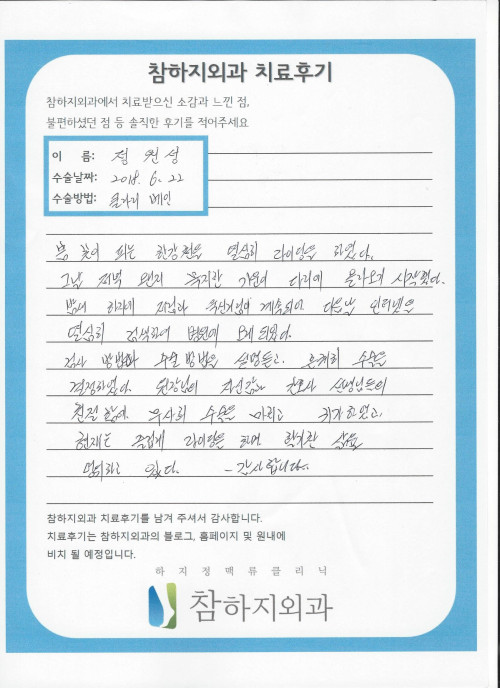 참하지외과 치료후기
참하지외과에서 치료받으신 소감과 느낀 점,
불편하셨던 점 등 솔직한 후기를 적어주세요
이 름: 정 원 성
수술날짜: 2018. 6. 22
수술방법: 클라리 베인
봄 꽃이 피는 한강변을 열심히 라이딩을 하였다.
그날 저녁 왠지 묵지한 기운이 다리에 올라오기 시작했다.
밤새 하지에 저림과 욱신거림이 계속되어 다음날 인터넷을
열심히 검색하여 병원에 오게 되었다.
검사 방법과 수술 방법을 설명듣고, 흔쾌히 수술을
결정하였다. 원장님의 자신감과 간호사 선생님들의
친절함에 무사히 수술을 마치고 귀가하였고,
현재는 즐겁게 라이딩을 하며 활기찬 삶을
영위하고 있다. - 감사합니다.
참하지외과 치료후기를 남겨 주셔서 감사합니다.
치료후기는 참하지외과의 블로그, 홈페이지 및 원내에
비치 될 예정입니다.
하지정맥류클리닉
참하지외과